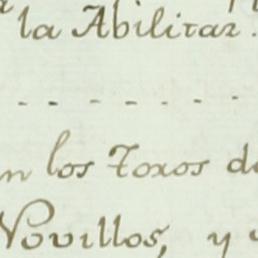 la Abilitar.
- - - - - - -
n los Toros d
Novillos, y